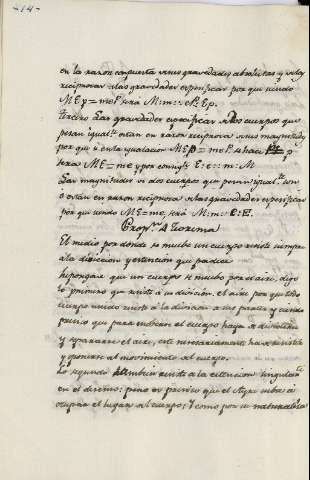 -14-
en la razon compuesta de sus gravedades absolutas y
reciproca de las gravedades especificas por que siendo
M E p = m e P. sera M : m :: e P : E p.
tercero Las gravedades especificas de los cuerpos que
pesan igual.te estan en razon reciproca de sus magnitudes
por que si en la equalacion M E p = m e P. se hace P = p
sera M E = m e y por consig.te E : e :: m : M
Las magnitudes de dos cuerpos que pesan igual.te son
o estan en razon reciproca de las gravedades especificas
por que siendo M E = m e, sera M : m :: e : E.
Prop.on 4 Teorema
El medio por donde se muebe un cuerpo resiste siempre
a la division y extencion que padece
Supongase que un cuerpo se muebe por el aire, digo
lo primero que resiste a su division el aire por que todo
cuerpo unido resiste a la division de sus partes y siendo
preciso que para moberse el cuerpo haya de dividirse
y separarse el aire, este necesariamente ha de resistir
y oponerse al movimiento del cuerpo.
Lo segundo tambien resiste a la extencion
en el discurso: pero es preciso que el Ayre suba a
ocupar el lugar del cuerpo: Y como por su naturaleza